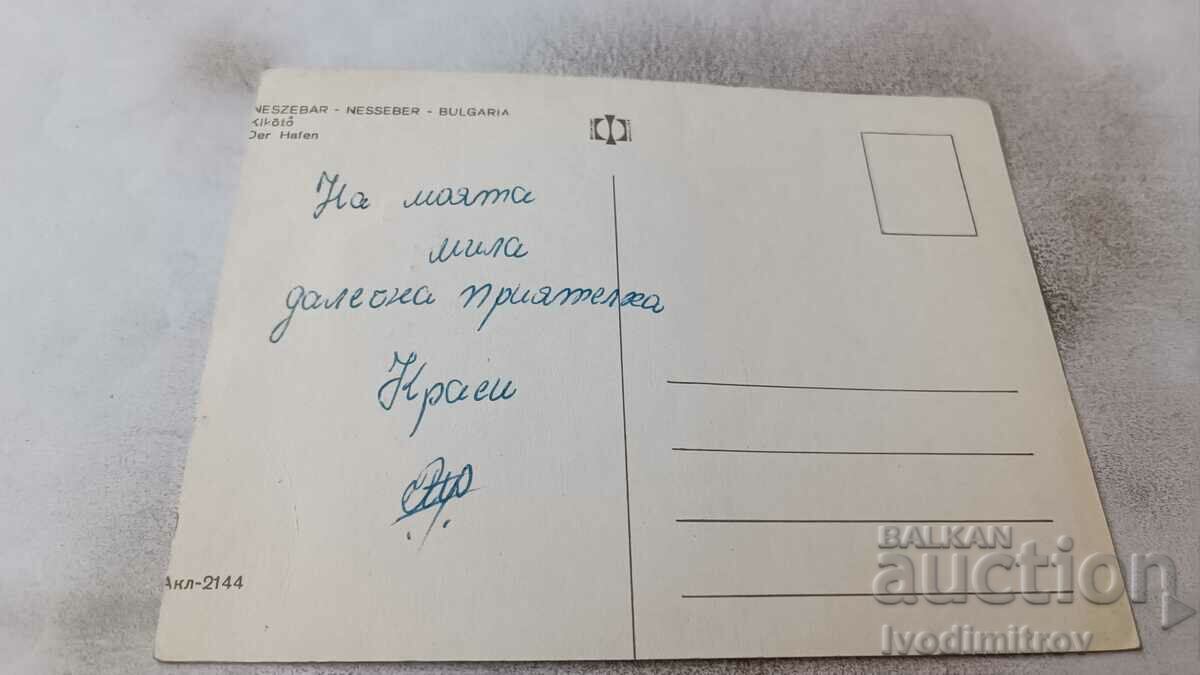 NESZEBAR - NESSEBER - BULGARIA
Kikötő
Der Hafen
На моята
мила
далечна приятелка
Краси
Акл-2144
BALKAN
auction
Ivodimitrov